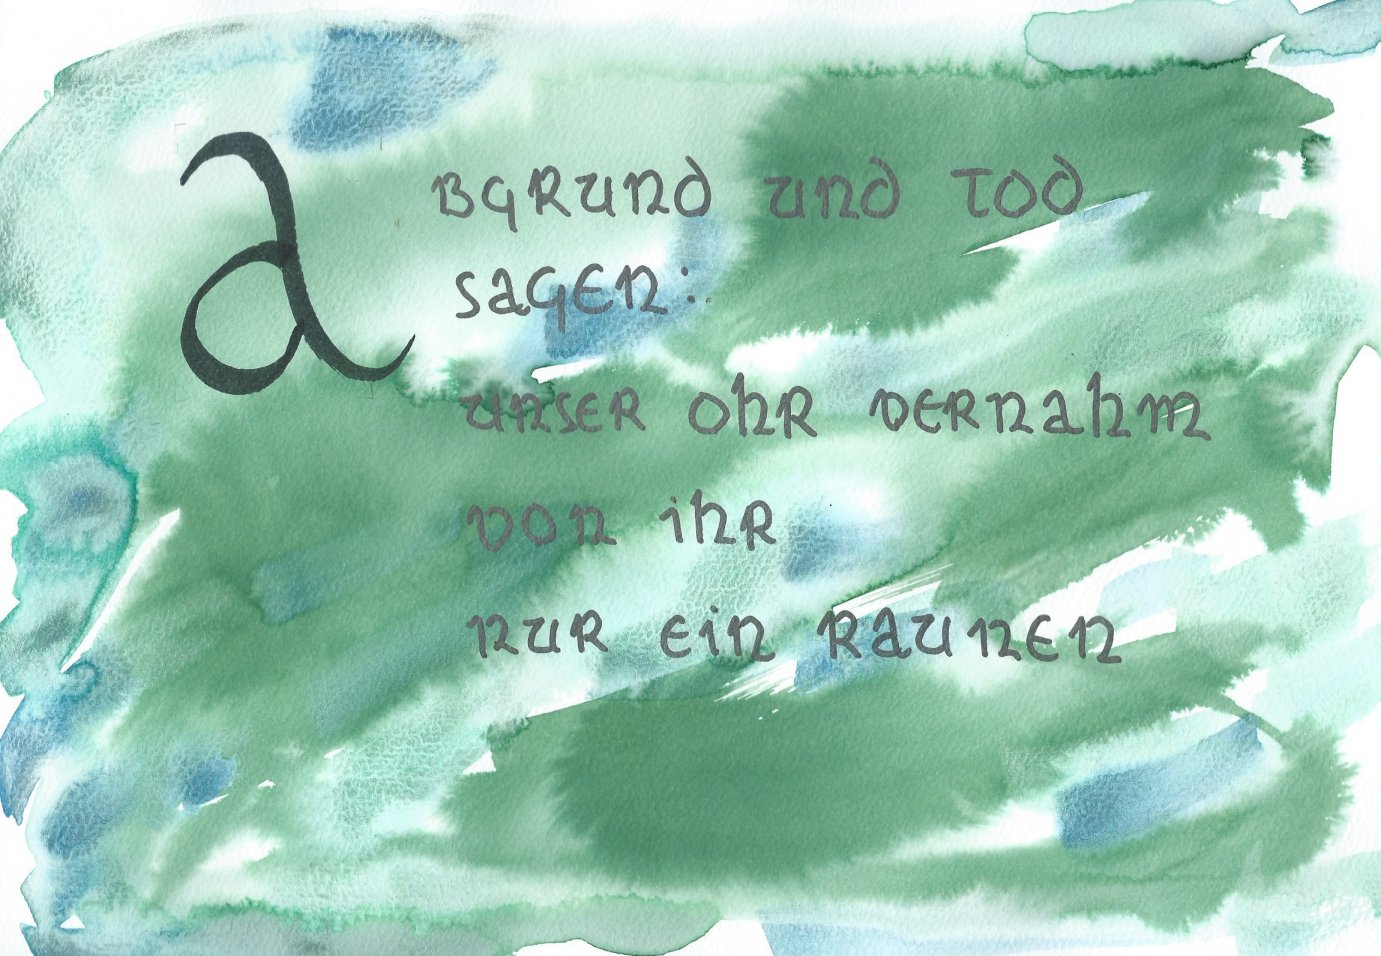 Abgrund und Tod
sagen:
unser Ohr vernahm
von ihr
nur ein Raunen